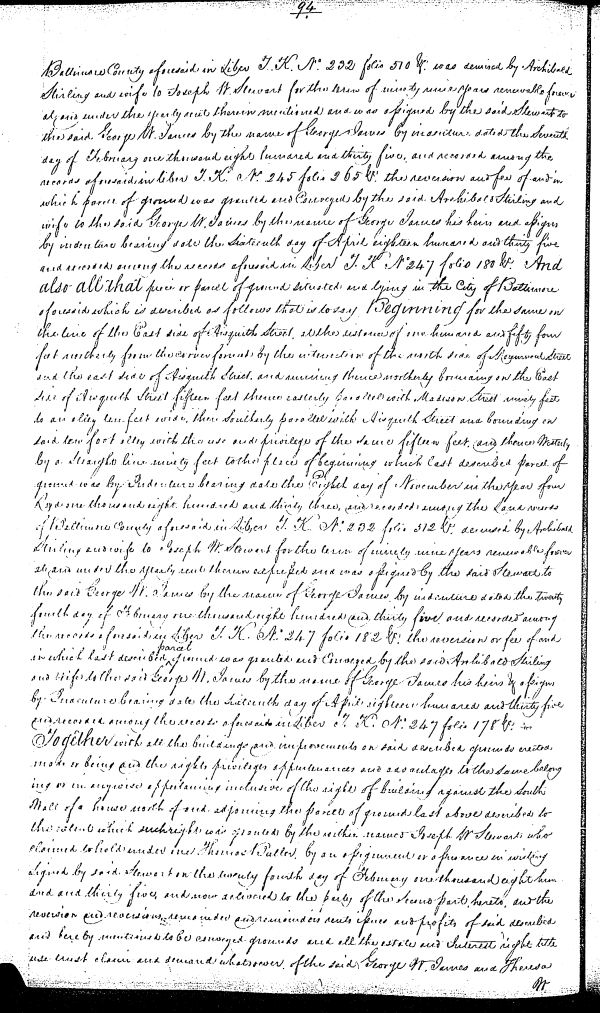 94
Baltimore County aforesaid in Liber T. K. No. 232 folio 510 &c. was demised by Archibald
Stirling and wife to Joseph W. Stewart for the term of ninety nine years renewable forever
at and under the yearly rent therein mentioned and was assigned by the said Stewart to
the said George W. James by the name of George James by indenture dated the Seventh
day of February one thousand eight hundred and thirty five, and recorded among the
records aforesaid in Liber T. K. No. 245 folio 265 &c. the reversion and fee of and in
which parcel of ground was granted and Conveyed by the said Archibald Stirling and
wife to the said George W. James by the name of George James his heirs and assigns
by indenture bearing date the Sixteenth day of April eighteen hundred and thirty five
and recorded among the records aforesaid in Liber T. K. No. 247 folio 180 &c. And
also all that piece or parcel of ground situated and lying in the City of Baltimore
aforesaid which is described as follows that is to say Beginning for the same on
the line of the East side of Aisquith Street, at the distance of one hundred and fifty four
feet northerly from the corner formed by the intersection of the north side of Street
and the east side of Aisquith Street, and running thence northerly bounding on the East
side of Aisquith Street fifteen feet thence easterly parallel with Madison Street ninety feet
to an alley ten feet wide, then Southerly parallel with Aisquith Street and bounding on
said ten foot alley with the use and privilege of the same fifteen feet, and thence Westerly
by a Straight line ninety feet to the place of beginning which last described parcel of
ground was by Indenture bearing date the Eighth day of November in the year of our
Lord one thousand eight hundred and thirty three, and recorded among the Land records
of Baltimore County aforesaid in Liber T. K. No. 232 folio 512 &c. demised by Archibald
Stirling and wife to Joseph W. Stewart for the term of ninety nine years renewable forever
at and under the yearly rent therein expressed and was assigned by the said Stewart to
the said George W. James by the name of George James, by indenture dated the twenty
fourth day of February one thousand eight hundred and thirty five, and recorded among
the records aforesaid in Liber T. K. No. 247 folio 182 &c. the reversion or fee of and
in which last described parcel ground was granted and Conveyed by the said Archibald Stirling
and Wife to the said George W. James by the name of George James his heirs & assigns
by Indenture bearing date the Sixteenth day of April eighteen hundred and thirty five
and recorded among the records aforesaid in Liber T. K. No. 247 folio 178 &c.
Together with all the buildings and improvements on said described grounds erected
made or being and the rights privileges appurtenances and advantages to the same belong
ing or in anywise appertaining inclusive of the right of building against the South
Wall of a house north of and adjoining the parcel of ground last above described to
the extent which such right was granted by the within named Joseph W Stewart who
claimed to hold under one Thomas Pulter, by an assignment or assurance in writing
signed by said Stewart on the twenty fourth day of February one thousand eight hun
dred and thirty five, and now delivered to the party of the second part hereto, and the
reversion and reversions, remainder and remainders rents issues and profits of said described
and hereby mentioned to be conveyed grounds and all the estate and Interest right title
use trust claim and demand whatsoever, of the said George W. James and Theresa
W.